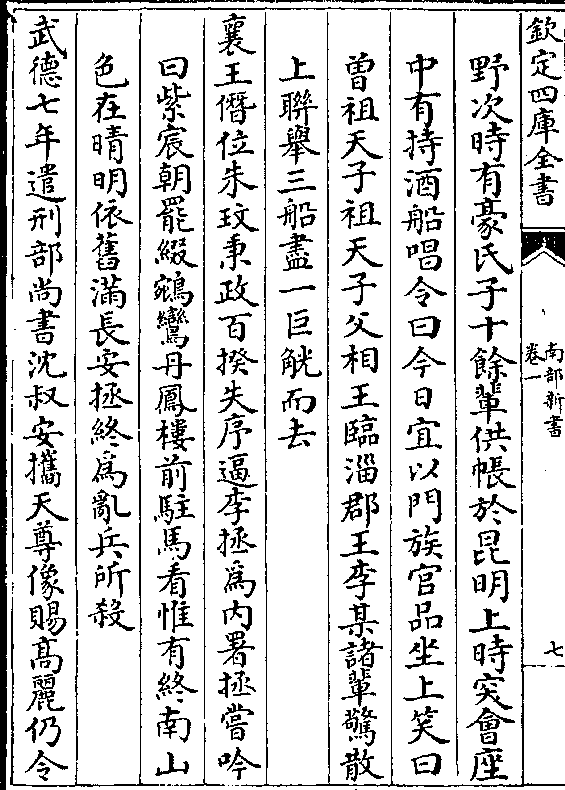 欽定四庫全書
南部新書
卷一
七
野次時有豪氏子十餘輩供帳於昆明上時突會座
中有持酒船唱令曰今日宜以門族官品坐上笑曰
曾祖天子祖天子父相王臨淄郡王李某諸輩驚散
上聯舉三船盡一巨觥而去
襄王僭位朱玫秉政百揆失序逼李拯為内署拯嘗吟
曰紫宸朝罷綴鵷鸞丹鳳樓前駐馬看惟有終南山
色在晴明依舊滿長安拯終為亂兵所殺
武德七年遣刑部尚書沈叔安攜天尊像賜高麗仍令